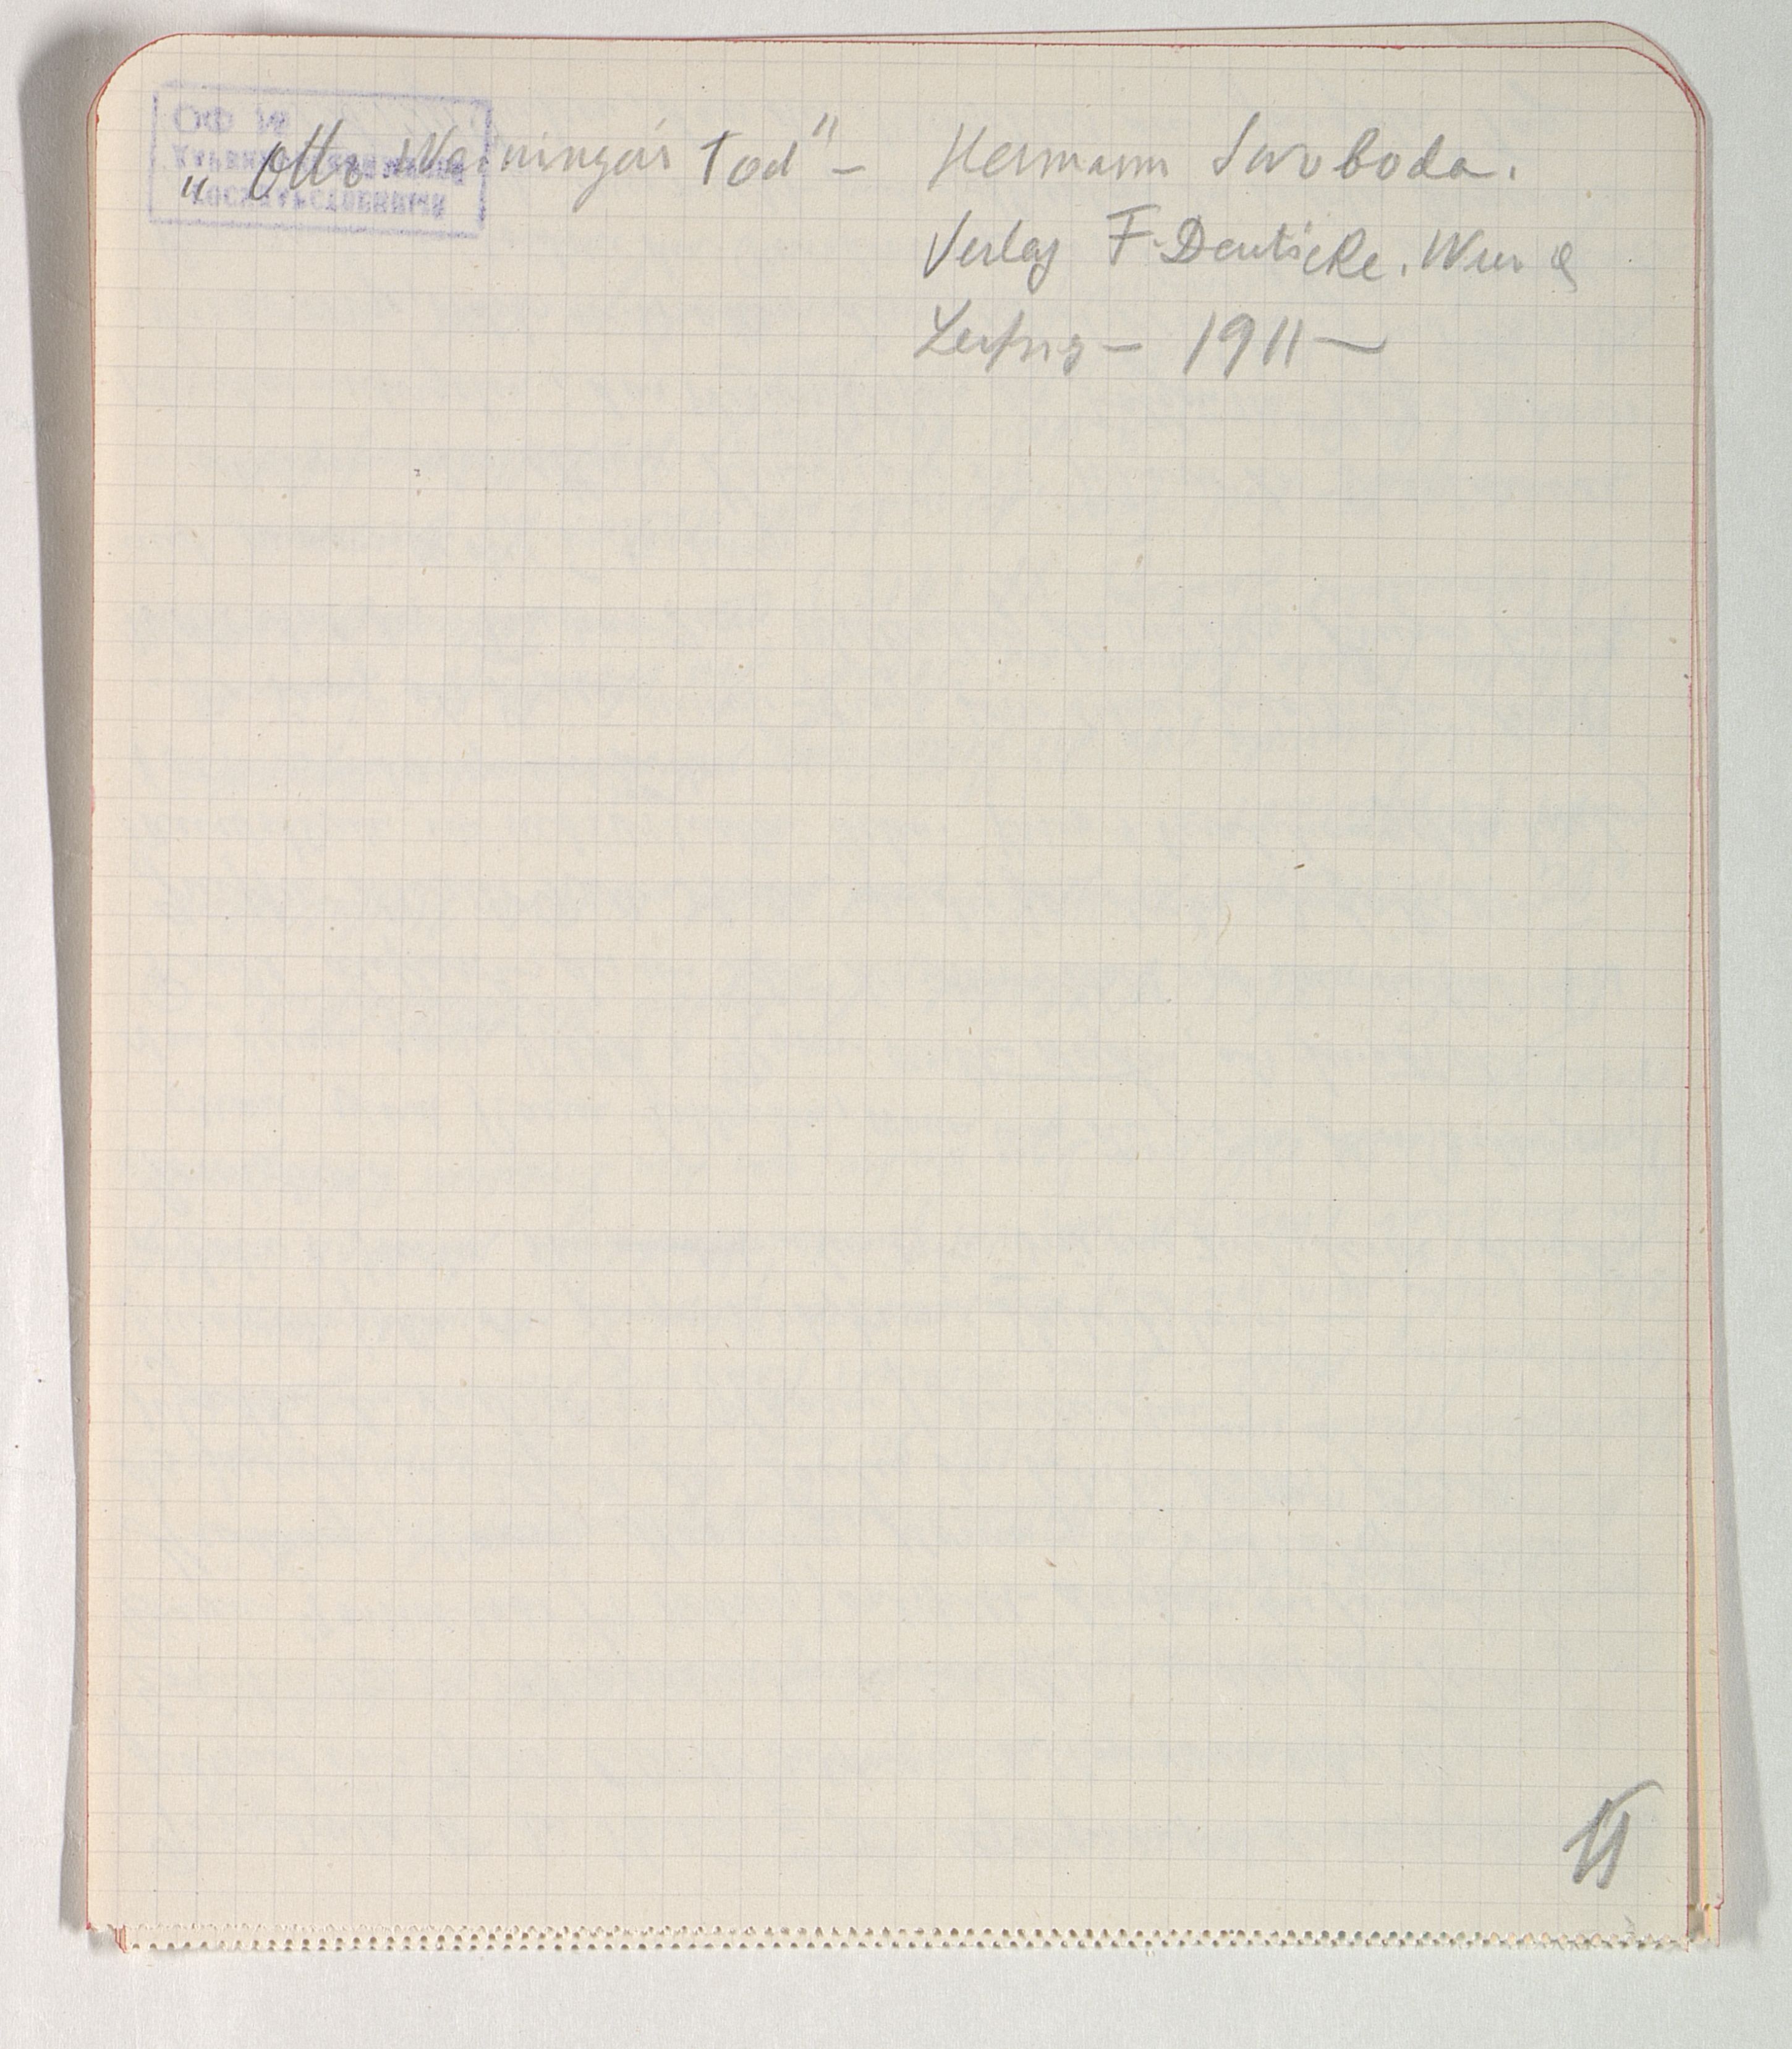 ОФ №
„ Otto Weiningers Tod" — Hermann Swoboda.
Verlag F. Deuticke. Wien &
Leipzig — 1911 —